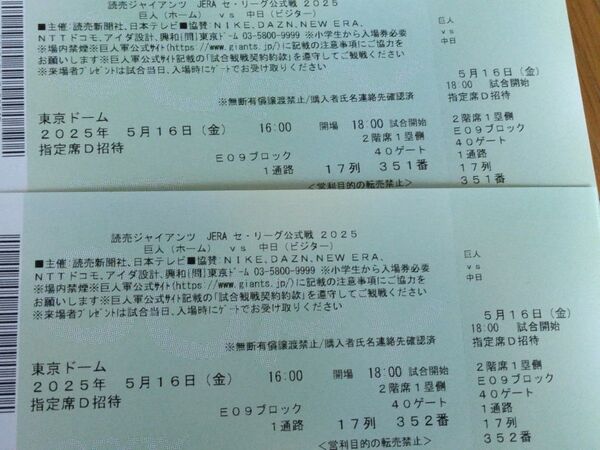 読売ジャイアンツ JERA セ・リーグ公式戦 2025
巨人(ホーム) vs 中日(ビジター)
■主催:読売新聞社、日本テレビ■協賛:NIKE、DAZN、NEW ERA、
NTTドコモ、アイダ設計、興和[問]東京ドーム 03-5800-9999 ※小学生から入場券必要
※場内禁煙※巨人軍公式サイト(https://www.giants.jp/)に記載の注意事項にご協力を
お願いします※巨人軍公式サイト記載の「試合観戦契約約款」を遵守してご観戦ください
※来場者プレゼントは試合当日、入場時にゲートでお受け取りください
※無断有償譲渡禁止/購入者氏名連絡先確認済
東京ドーム
2025年 5月16日(金) 16:00 開場 18:00 試合開始
指定席D招待 2階席1塁側
E09ブロック 40ゲート
1通路 17列 351番
<営利目的の転売禁止>
巨人
vs
中日
5月16日(金)
18:00 試合開始
指定席D招待
2階席1塁側
40ゲート
E09ブロック
1通路
17列
351番
読売ジャイアンツ JERA セ・リーグ公式戦 2025
巨人(ホーム) vs 中日(ビジター)
■主催:読売新聞社、日本テレビ■協賛:NIKE、DAZN、NEW ERA、
NTTドコモ、アイダ設計、興和[問]東京ドーム 03-5800-9999 ※小学生から入場券必要
※場内禁煙※巨人軍公式サイト(https://www.giants.jp/)に記載の注意事項にご協力を
お願いします※巨人軍公式サイト記載の「試合観戦契約約款」を遵守してご観戦ください
※来場者プレゼントは試合当日、入場時にゲートでお受け取りください
※無断有償譲渡禁止/購入者氏名連絡先確認済
東京ドーム
2025年 5月16日(金) 16:00 開場 18:00 試合開始
指定席D招待 2階席1塁側
E09ブロック 40ゲート
1通路 17列 352番
<営利目的の転売禁止>
巨人
vs
中日
5月16日(金)
18:00 試合開始
指定席D招待
2階席1塁側
E09ブロック
40ゲート
1通路
17列
352番